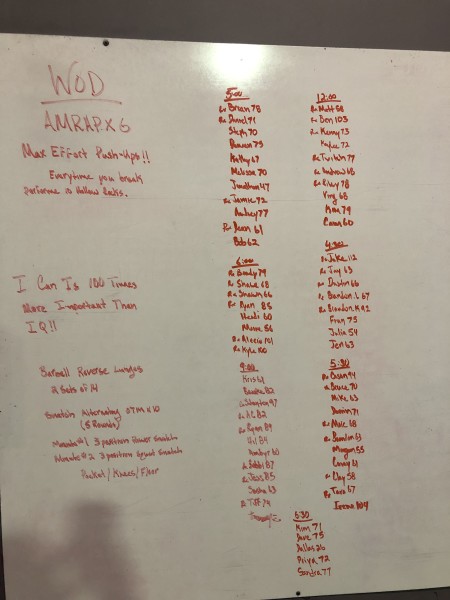 WOD
AMRAP X 6
Max Effort Push-Ups!!
Everytime you break
perform 10 Hollow Rocks.
I Can Is 100 Times
More Important Than
IQ!!
Barbell Reverse Lunges
2 Sets of 14
Snatch Alternating OTM x 10
(5 Rounds)
Minute #1 3 position Power Snatch
Minute #2 3 position Squat Snatch
Pocket/Knees/Floor
5:00
Rx Brian 78
Rx Daniel 71
Steph 70
79
Kathy 67
Melissa 70
Jonathan 47
Rx Jamie 72
Audrey 77
Rx 61
Bob 62
6:00
Rx Brady 79
Rx Shane 68
Rx Shawn 66
Rx Ryan 85
Heidi 60
56
Rx Alexis 101
Rx Kyle 100
9:00
Kris 61
82
97
Rx AC 82
Rx Ryan 89
84
60
Bobbi 87
Rx Jess 85
Sasha 63
Rx Tiff 74
12:00
Rx Matt 58
Rx Ben 103
Rx Kenny 73
Kaylee 72
77
Rx Andrew 68
Rx Riley 78
68
79
60
4:30
Rx Jake 112
Rx Jay 63
Rx Dustin 66
Rx Brandon L 67
Rx Brandon K 92
Fran 75
Julia 54
Jen 63
5:30
Rx 94
Bruce 70
Mike 63
71
Rx 68
Rx Brandon
Morgan 55
61
Rx Clay 58
Rx Tara 67
104
6:30
Kim 71
Dave 75
Dallas 26
Priya 72
Sandra 77